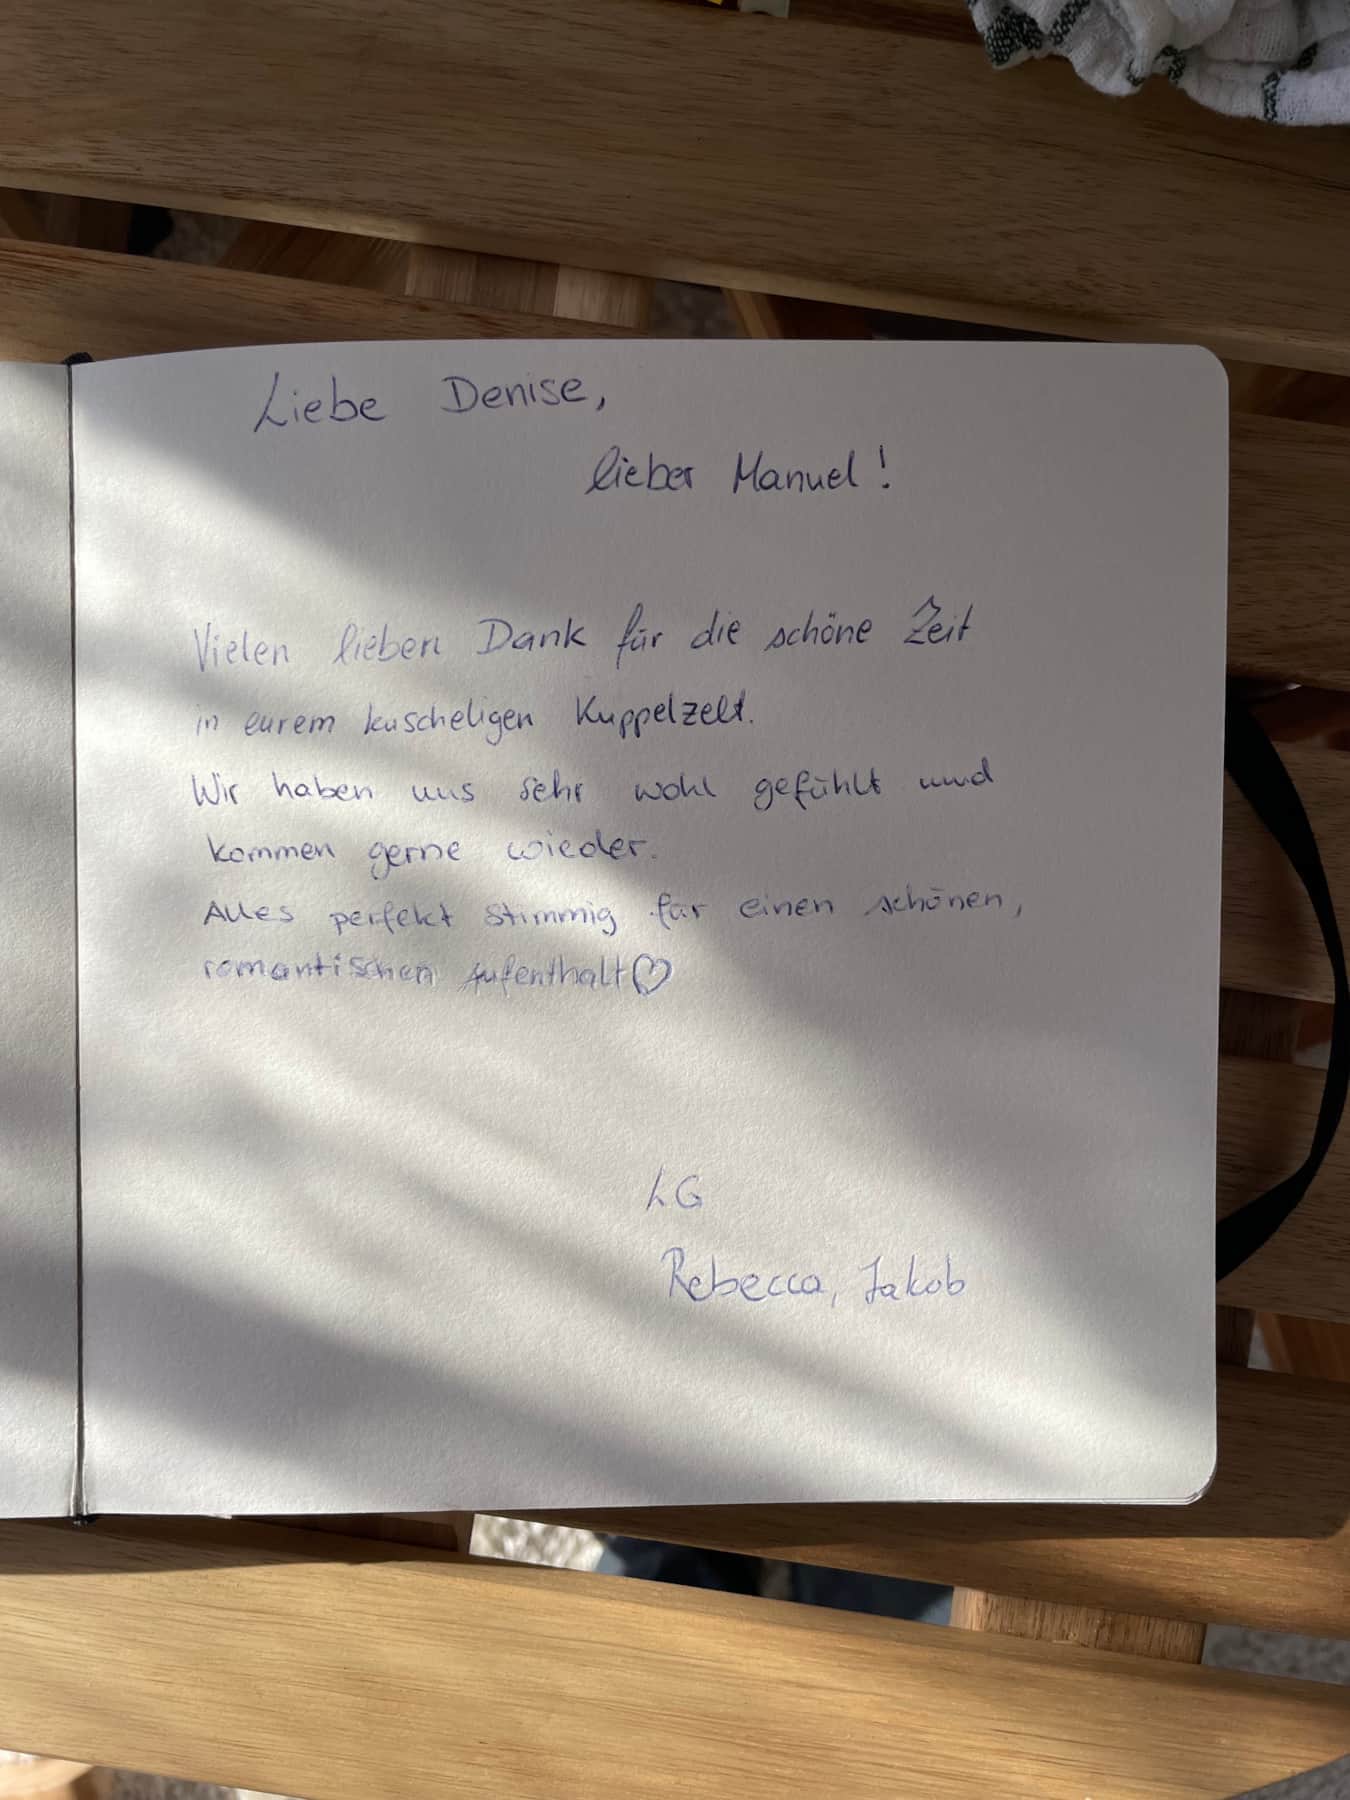 Liebe Denise,
lieber Manuel!
Vielen lieben Dank für die schöne Zeit
in eurem kuscheligen Kuppelzelt.
Wir haben uns sehr wohl gefühlt und
kommen gerne wieder.
Alles perfekt stimmig für einen schönen,
romantischen Aufenthalt♡
LG
Rebecca, Jakob